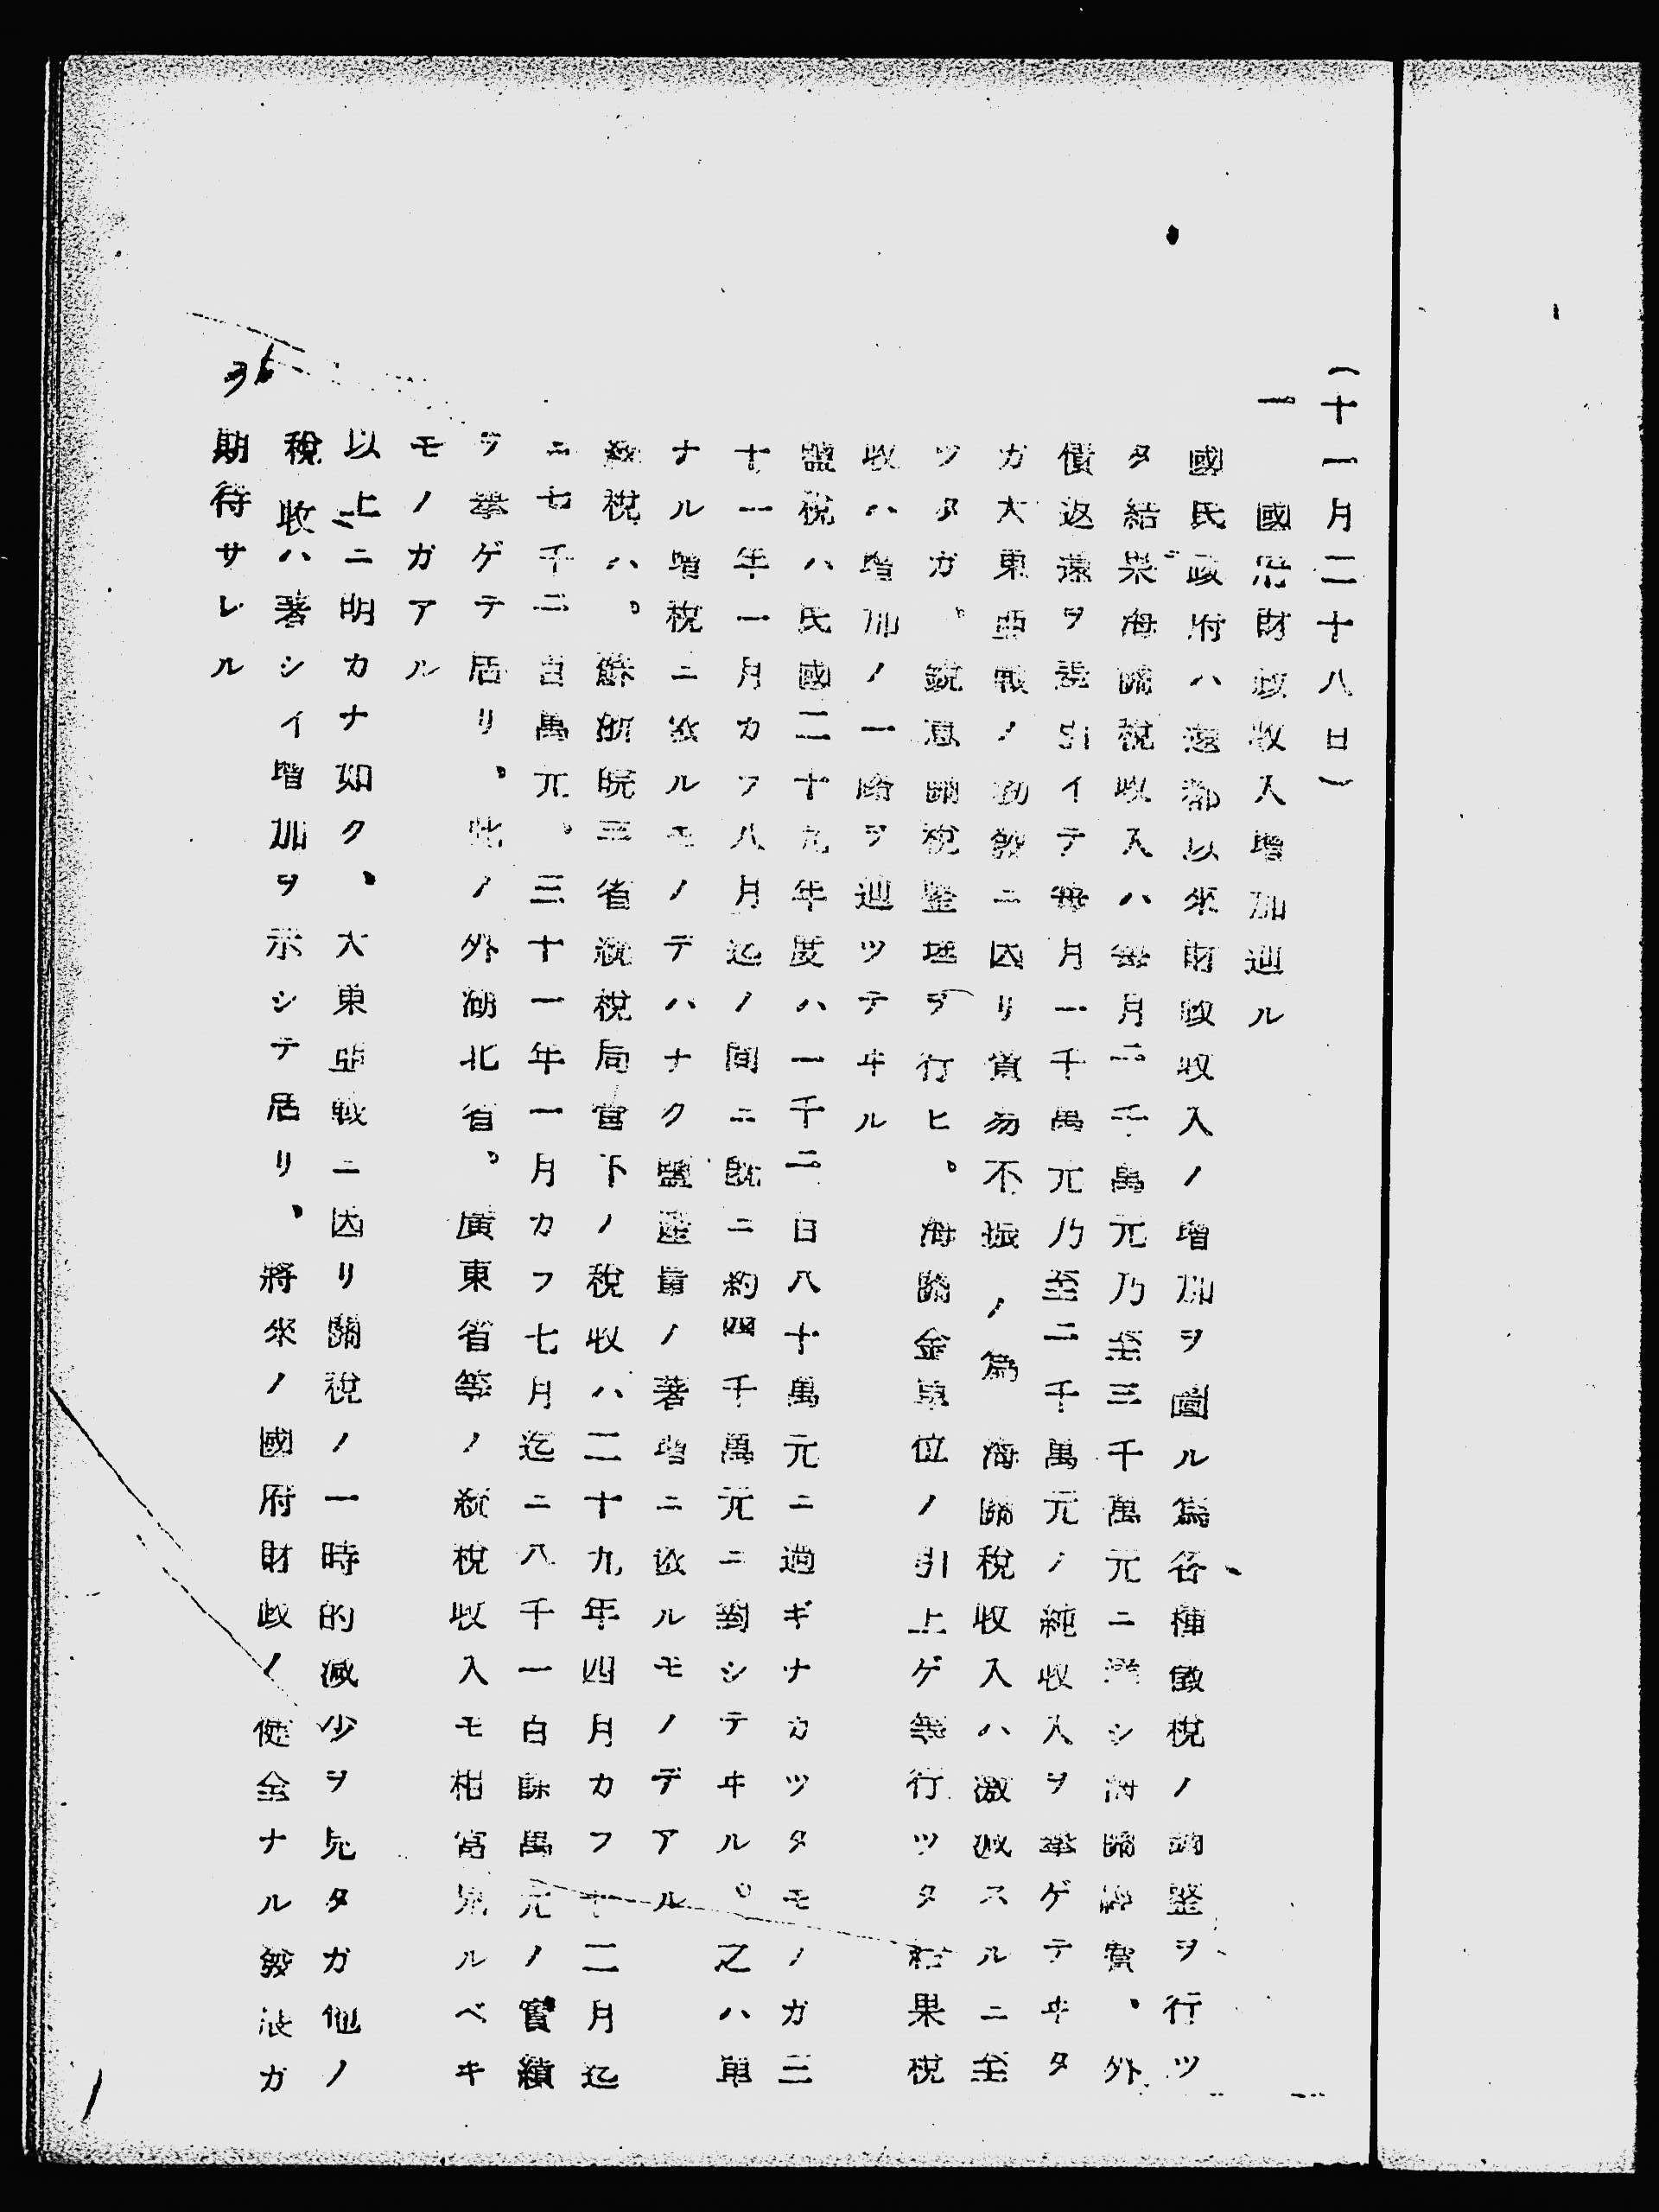 (十一月二十八日)
一 國府財政收入增加辿ル
國民政府ハ還都以來財政收入ノ增加ヲ圖ル爲各種徵稅ノ調整ヲ行ツ
タ結果海關稅收入ハ每月二千萬元乃至三千萬元ニ滿シ海關經費、外
債返還ヲ差引イテ每月一千萬元乃至二千萬元ノ純收入ヲ擧ゲテヰタ
ガ大東亞戰ノ勃發ニ因リ貨物不振ノ爲海關稅收入ハ激減スルニ至
ツタガ。銳意關稅整理ヲ行ヒ。海關金單位ノ引上ゲ等行ツタ結果稅
收ハ增加ノ一路ヲ辿ツテヰル
鹽稅ハ民國二十九年度ハ一千二百八十萬元ニ過ギナカツタモノガ三
十一年一月カラ八月迄ノ間ニ既ニ約四千萬元ニ對シテヰル。之ハ單
ナル增稅ニ依ルモノデハナク鹽產量ノ著增ニ依ルモノデアル
統稅ハ。蘇浙皖三省統稅局管下ノ稅收ハ二十九年四月カラ十二月迄
ニ七千二百萬元。三十一年一月カラ七月迄ニ八千一百餘萬元ノ實績
ヲ擧ゲテ居リ。此ノ外湖北省。廣東省等ノ統稅收入モ相當見ルベキ
モノガアル
以上ニ明カナ如ク、大東亞戰ニ因リ關稅ノ一時的減少ヲ見タガ他ノ
稅收ハ著シイ增加ヲ示シテ居リ、將來ノ國府財政ノ健全ナル發展ガ
期待サレル
36